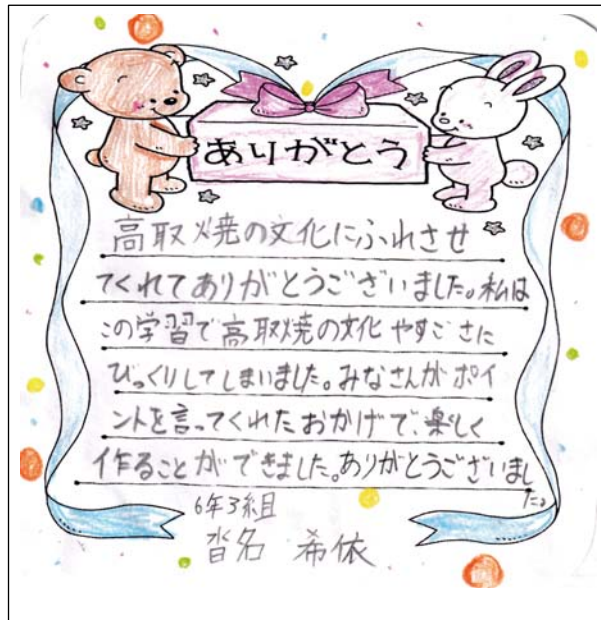 ありがとう
高取焼の文化にふれさせ
てくれてありがとうございました。私は
この学習で高取焼の文化やすごさに
びっくりしてしまいました。みなさんがポイ
ントを言ってくれたおかげで、楽しく
作ることができました。ありがとうございまし
た。
6年3組
沓名 希依